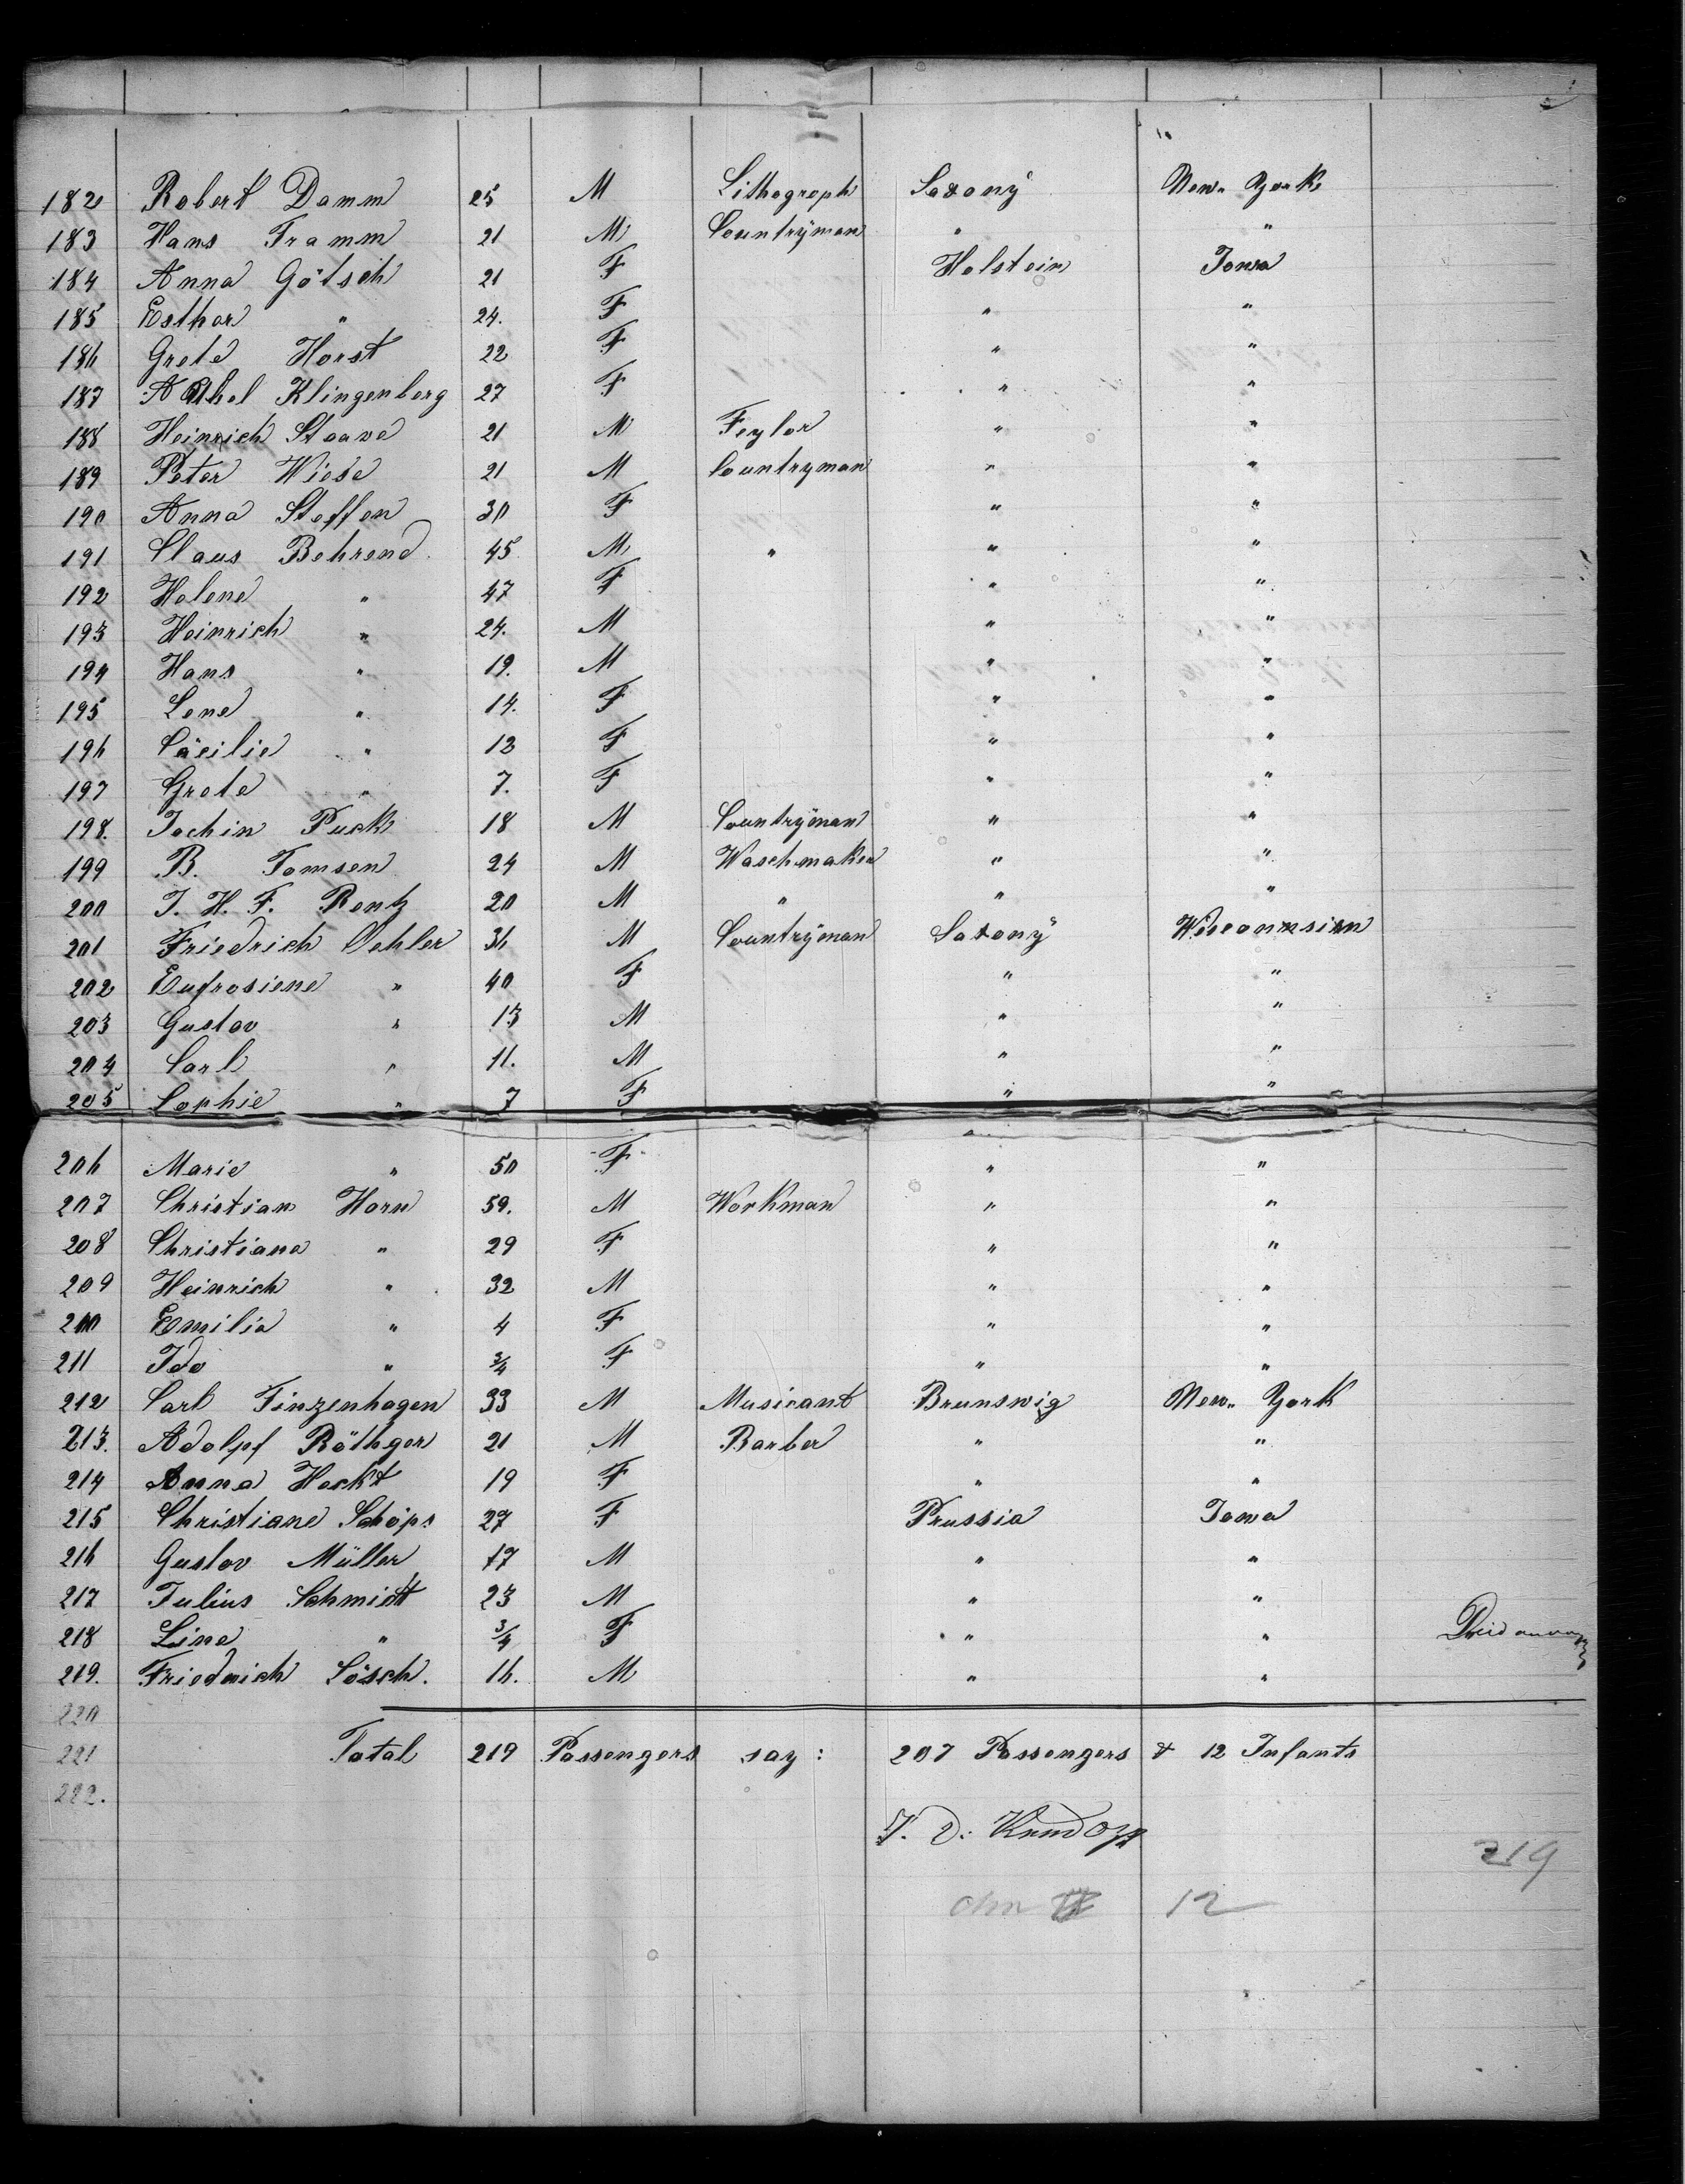 182 Robert Damm 25 M Lithograph Saxony New-York
183 Hans Framm 21 M Countryman " "
184 Anna Götsch 21 F Holstein Iowa
185 Esther " 24. F " "
186 Grete Horst 22 F " "
187 Klingenberg 27 F " "
188 Heinrich Staave 21 M Feylor " "
189 Peter Wiese 21 M Countryman " "
190 Anna Steffen 30 F " "
191 Claus Behrend 45 M " " "
192 Helene " 47 F " "
193 Heinrich " 24. M " "
194 Hans " 19. M " "
195 Lene " 14. F " "
196 Cäcilie " 12 F " "
197 Grete " 7. F " "
198. Jochin Puck 18 M Countryman " "
199 B. Tomsen 24 M Waschmaker " "
200 J. H. F. Rentz 20 M " " "
201 Friedrich Oehler 36 M Countryman Saxony Wisconnsien
202 Eufrosiene " 40 F " "
203 Gustav " 13 M " "
204 Carl " 11. M " "
205 Sophie " 7 F " "
206 Marie " 50 F " "
207 Christian Horn 59. M Workman " "
208 Christiana " 29 F " "
209 Heinrich " 32 M " "
210 Emilia " 4 F " "
211 Ida " 3/4 F " "
212 Carl Finzenhagen 33 M Musicant Brunswig New-York
213. Adolpf Röthger 21 M Barber " "
214 Anna Heckt 19 F " "
215 Christiane Schöps 27 F Prussia Iowa
216 Gustav Müller 17 M " "
217 Julius Schmidt 23 M " "
218 Line " 3/4 F " "
219. Friedrich Lösch. 16. M " "
220
221 Total 219 Passengers say : 207 Passengers & 12 Infants
222.
219
12